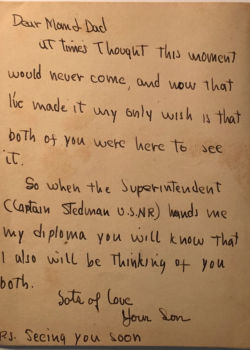 Dear Mom & Dad
At times thought this moment
would never come, and now that
I've made it my only wish is that
both of you were here to see
it.
So when the Superintendent
(Captain Stedman U.S.NR) hands me
my diploma you will know that
I also will be thinking of you
both.
Lots of Love
Your Son
P.S. Seeing you soon